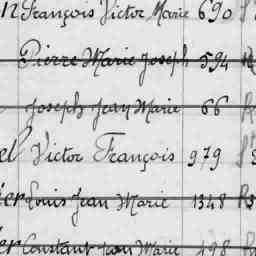 n François Victor Marie 690
Pierre Marie Joseph 594
Joseph Jean Marie 66
el Victor François 979
ier Louis Jean Marie 1348 R
ier Constant Jean Marie 498